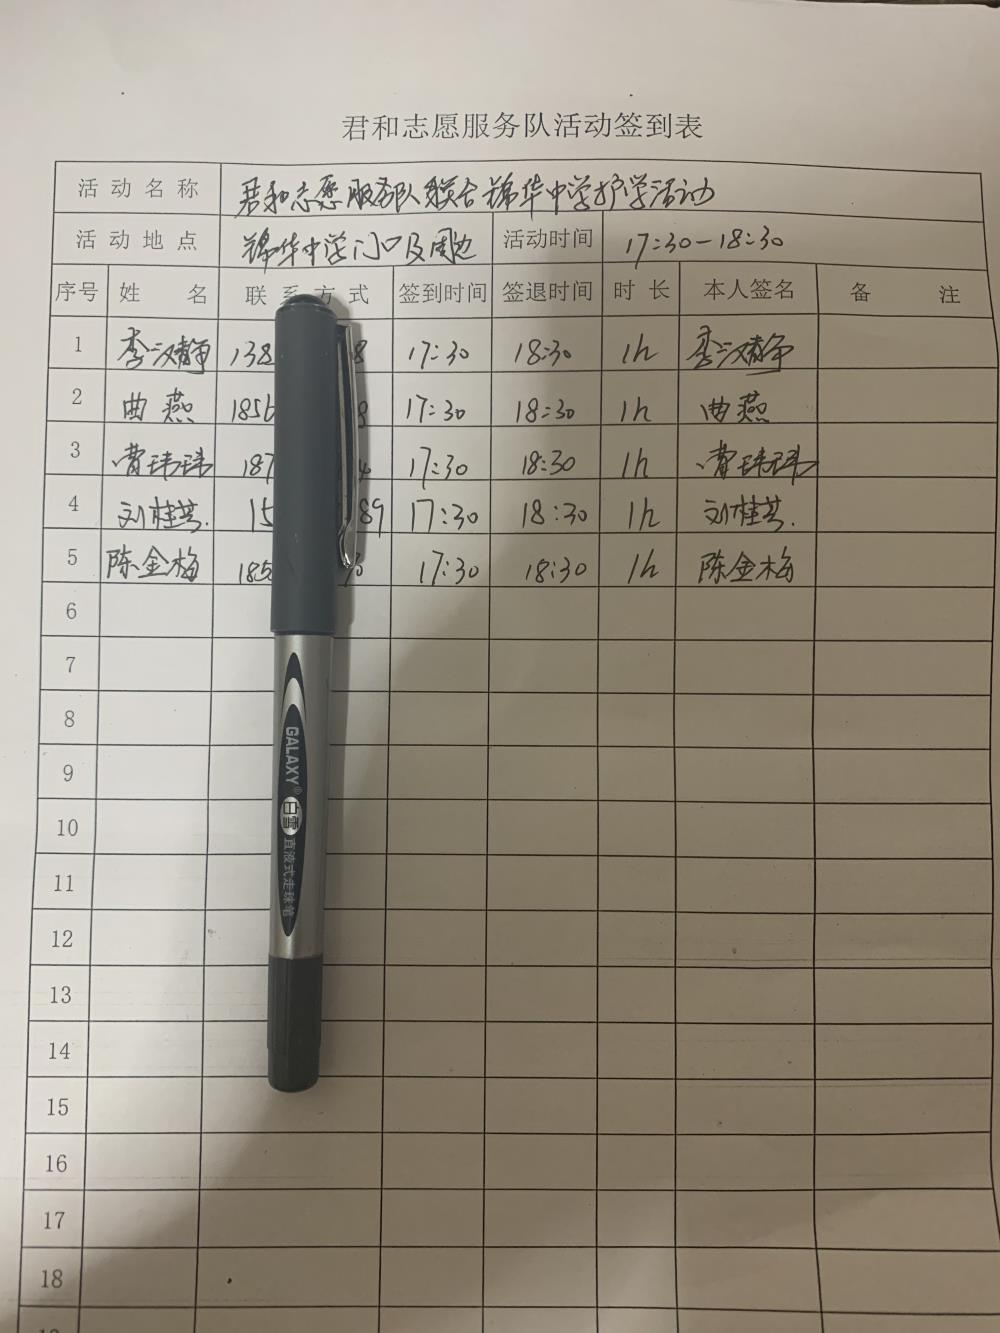 君和志愿服务队活动签到表
活动名称 君和志愿服务队联合锦华中学护学活动
活动地点 锦华中学门口及周边 活动时间 17:30-18:30
序号 姓名 联系方式 签到时间 签退时间 时长 本人签名 备注
1 李汉静 138 8 17:30 18:30 1h 李汉静
2 曲燕 1856 8 17:30 18:30 1h 曲燕
3 曹玮玮 187 4 17:30 18:30 1h 曹玮玮
4 刘桂芸. 15 89 17:30 18:30 1h 刘桂芸.
5 陈金梅 185 17:30 18:30 1h 陈金梅
6
7
8
9
10
11
12
13
14
15
16
17
18
GALAXY®
白雪 直液式走珠笔